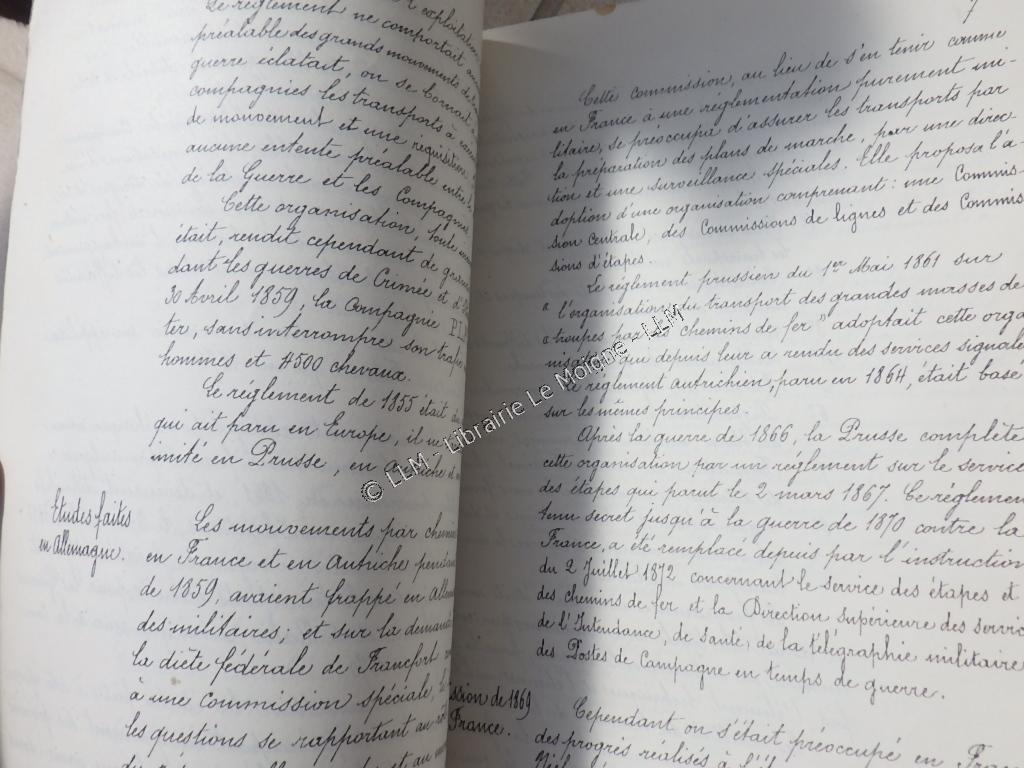 l'exploitation
Le réglement ne comportait au
préalable des grands mouvements de
guerre éclatait, on se bornait à
compagnies les transports à
de mouvement et une réquisition
aucune entente préalable entre
de la Guerre et les Compagnies
Cette organisation, toute
était, rendit cependant de
dant les guerres de Crimée et d'
30 Avril 1859, la Compagnie P.L.
ter, sans interrompre son trafic
hommes et 4500 chevaux.
Le réglement de 1855 était
qui ait paru en Europe, il
imité en Prusse, en
Etudes faites
en Allemagne.
Les mouvements par chemins
en France et en Autriche pendant
de 1859, avaient frappé en Allem
des militaires; et sur la demande
la diète fédérale de Francfort
à une commission spéciale,
les questions se rapportant au
7
Cette commission, au lieu de s'en tenir comme
en France à une réglementation purement mi-
litaire, se préoccupa d'assurer les transports par
la préparation des plans de marche, par une direc-
tion et une surveillance spéciales. Elle proposa l'a-
doption d'une organisation comprenant: une Commis-
sion Centrale, des Commissions de lignes et des Commis
sions d'étapes.
Le réglement prussien du 1er Mai 1861 sur
« l'organisation du transport des grandes masses de
« troupes par les chemins de fer » adoptait cette orga
nisation qui depuis leur a rendu des services signalé
Le réglement autrichien, paru en 1864, était basé
sur les mêmes principes.
Après la guerre de 1866, la Prusse complète
cette organisation par un réglement sur le service
des étapes qui parut le 2 mars 1867. Ce réglemen
tenu secret jusqu'à la guerre de 1870 contre la
France, a été remplacé depuis par l'instruction
du 2 Juillet 1872 concernant le service des étapes et
des chemins de fer et la Direction Supérieure des servic
de l'Intendance, de Santé, de la télégraphie militaire
des Postes de Campagne en temps de guerre.
ssion de 1869
France.
Cependant on s'était préoccupé en Franc
des progrès réalisés à l'
© LLM - Librairie Le Moigne - LLM